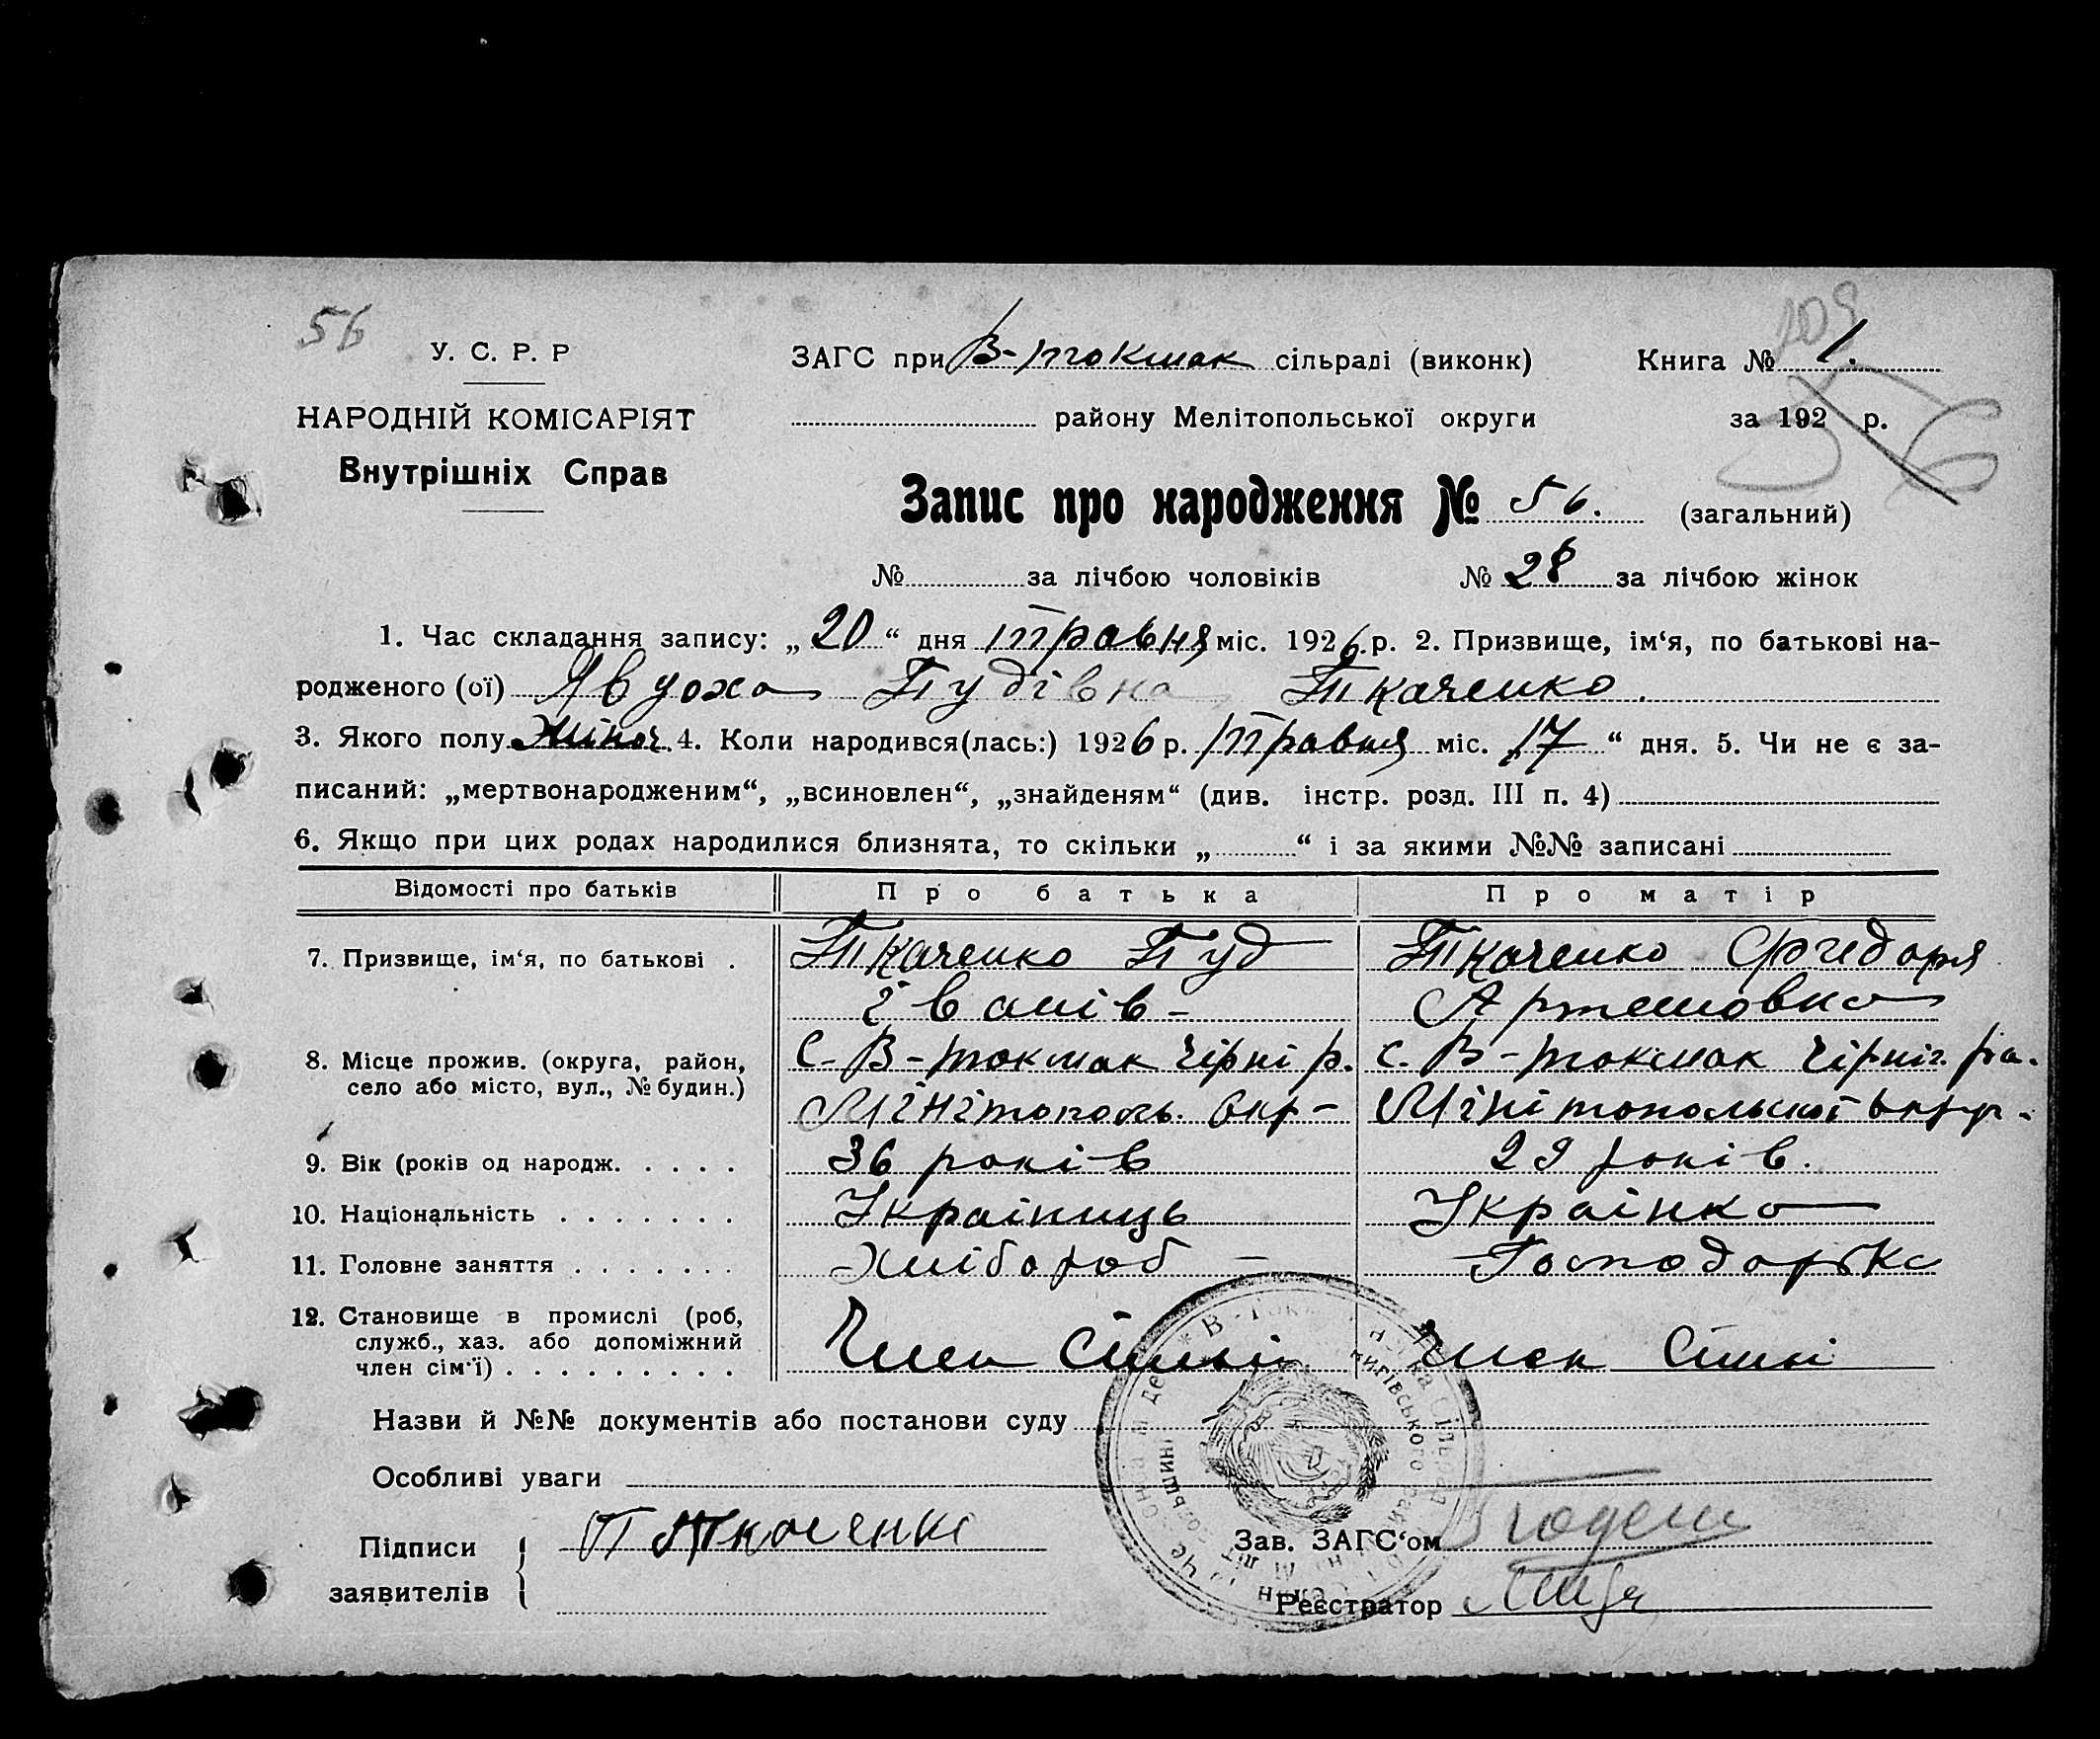 56
109
У. С. Р. Р
ЗАГС при В-токмак сільраді (виконк)
Книга № 1.
НАРОДНІЙ КОМІСАРІЯТ
району Мелітопольської округи
за 192 р.
56
Внутрішніх Справ
Запис про народження № 56. (загальний)
№ за лічбою чоловіків № 28 за лічбою жінок
1. Час складання запису: „20“ дня травня міс. 1926 р. 2. Призвище, ім‘я, по батькові на-
родженого (ої) Явдоха Пудівна Ткаченко.
3. Якого полу жіноч. 4. Коли народився(лась:) 1926 р. травня міс. „17“ дня. 5. Чи не є за-
писаний: „мертвонародженим“, „всиновлен“, „знайденям“ (див. інстр. розд. III п. 4)
6. Якщо при цих родах народилися близнята, то скільки „ “ і за якими №№ записані
Відомості про батьків Про батька Про матір
7. Призвище, ім‘я, по батькові . Ткаченко Пуд Ткаченко Фтедоря
Іванів- Артемовна
8. Місце прожив. (округа, район, С-В-токмак Чірні р. с. В-токмак Чірніг. ра.
село або місто, вул., № будин.)
Мінітополь. Окр- Мінітопольскоі округ-
9. Вік (років од народж. . . . . 36 років 29 років.
10. Національність . . . . . . . Украінець Украінка
11. Головне заняття . . . . . . . Хлібороб - Господарька
12. Становище в промислі (роб,
служб., хаз. або допоміжний
член сім‘ї) . . . . . . . . . Член Сімьі Член Сімьі
Назви й №№ документів або постанови суду
Особливі уваги
Підписи
заявителів
П Ткаченко
Зав. ЗАГС‘ом
Реєстратор